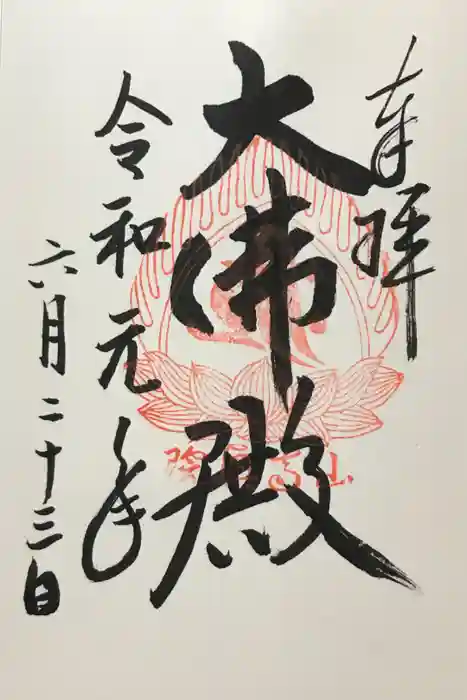 奉拝
大佛殿
令和元年
六月二十三日